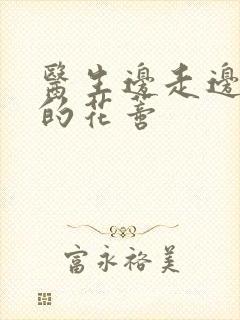 醫生邊走邊
的花蕾
富永裕美